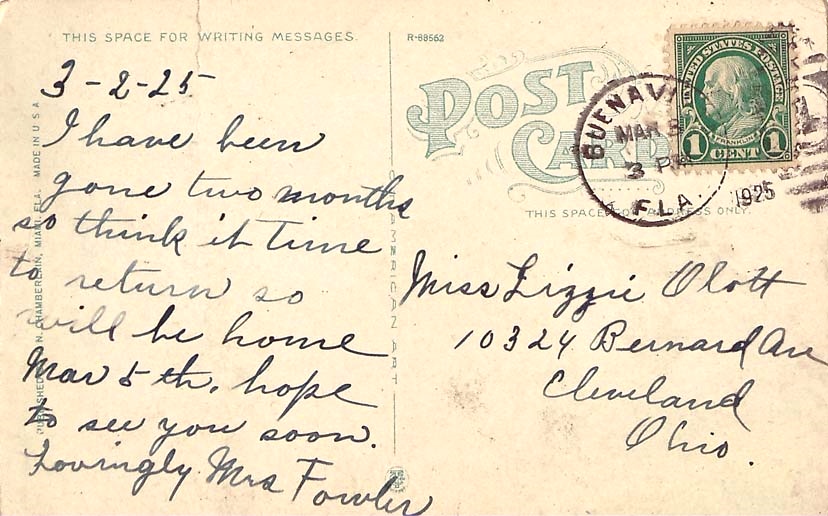 THIS SPACE FOR WRITING MESSAGES.
R-88562
3-2-25
I have been
gone two months
so think it time
to return so
will be home
Mar 5th. hope
to see you soon.
Lovingly Mrs Fowler
N. CHAMBERLAIN, MIAMI, FLA. MADE IN U S A
AMERICAN ART
POST CARD
UNITED STATES POSTAGE
FRANKLIN
1 CENT 1
MAR
3 PM
FLA
1925
THIS SPACE FOR ADDRESS ONLY.
Miss Lizzie Olott
10324 Bernard Ave
Cleveland
Ohio.